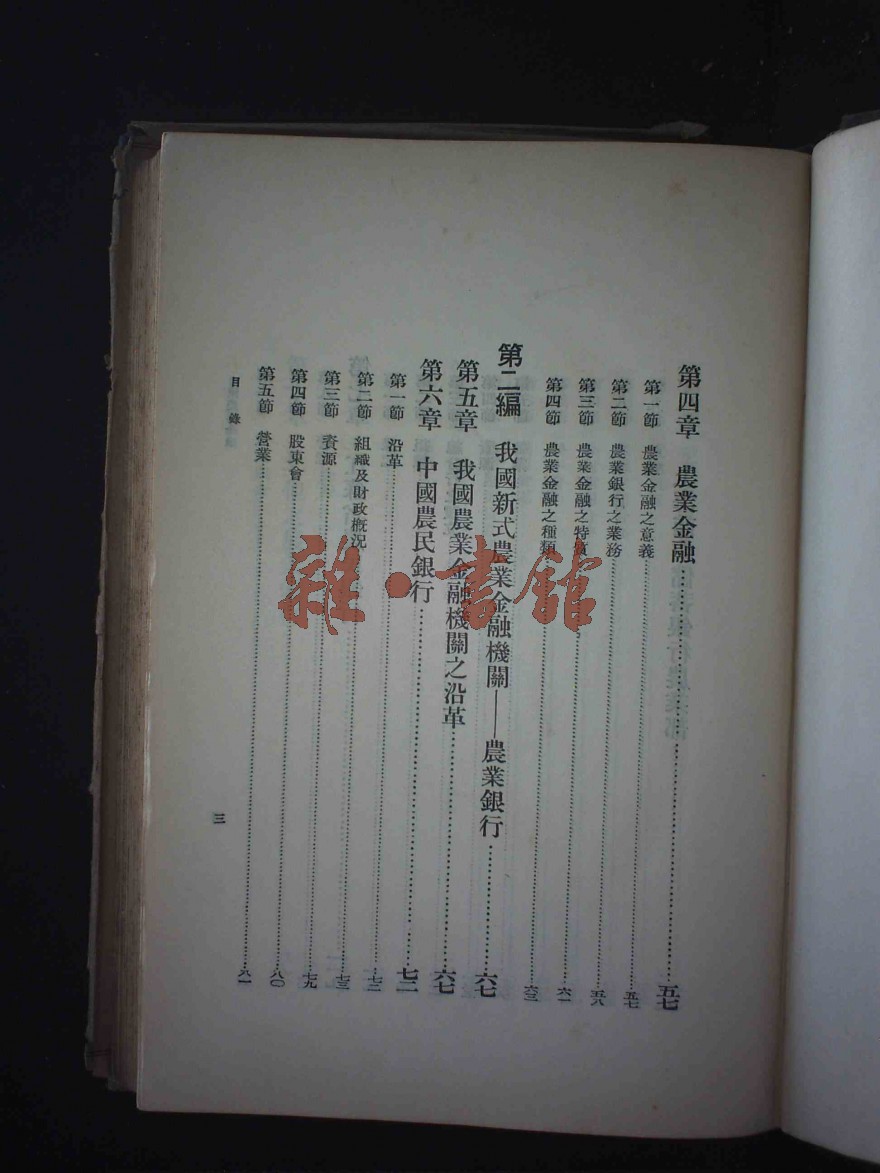 第四章 農業金融……五七
第一節 農業金融之意義……五七
第二節 農業銀行之業務……五八
第三節 農業金融之特質……六一
第四節 農業金融之種類……六三
第二編 我國新式農業金融機關——農業銀行……六七
第五章 我國農業金融機關之沿革……六七
第六章 中國農民銀行……七二
第一節 沿革……七二
第二節 組織及財政概況……七三
第三節 資源……七九
第四節 股東會……八〇
第五節 營業……八一
目錄
三
雜·書館